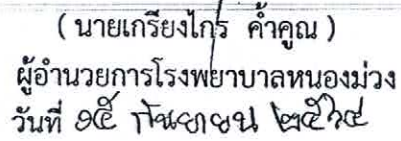 ( นายเกรียงไกร ค้ำคูณ )
ผู้อำนวยการโรงพยาบาลหนองม่วง
วันที่ ๑๕ กันยายน ๒๕๖๔